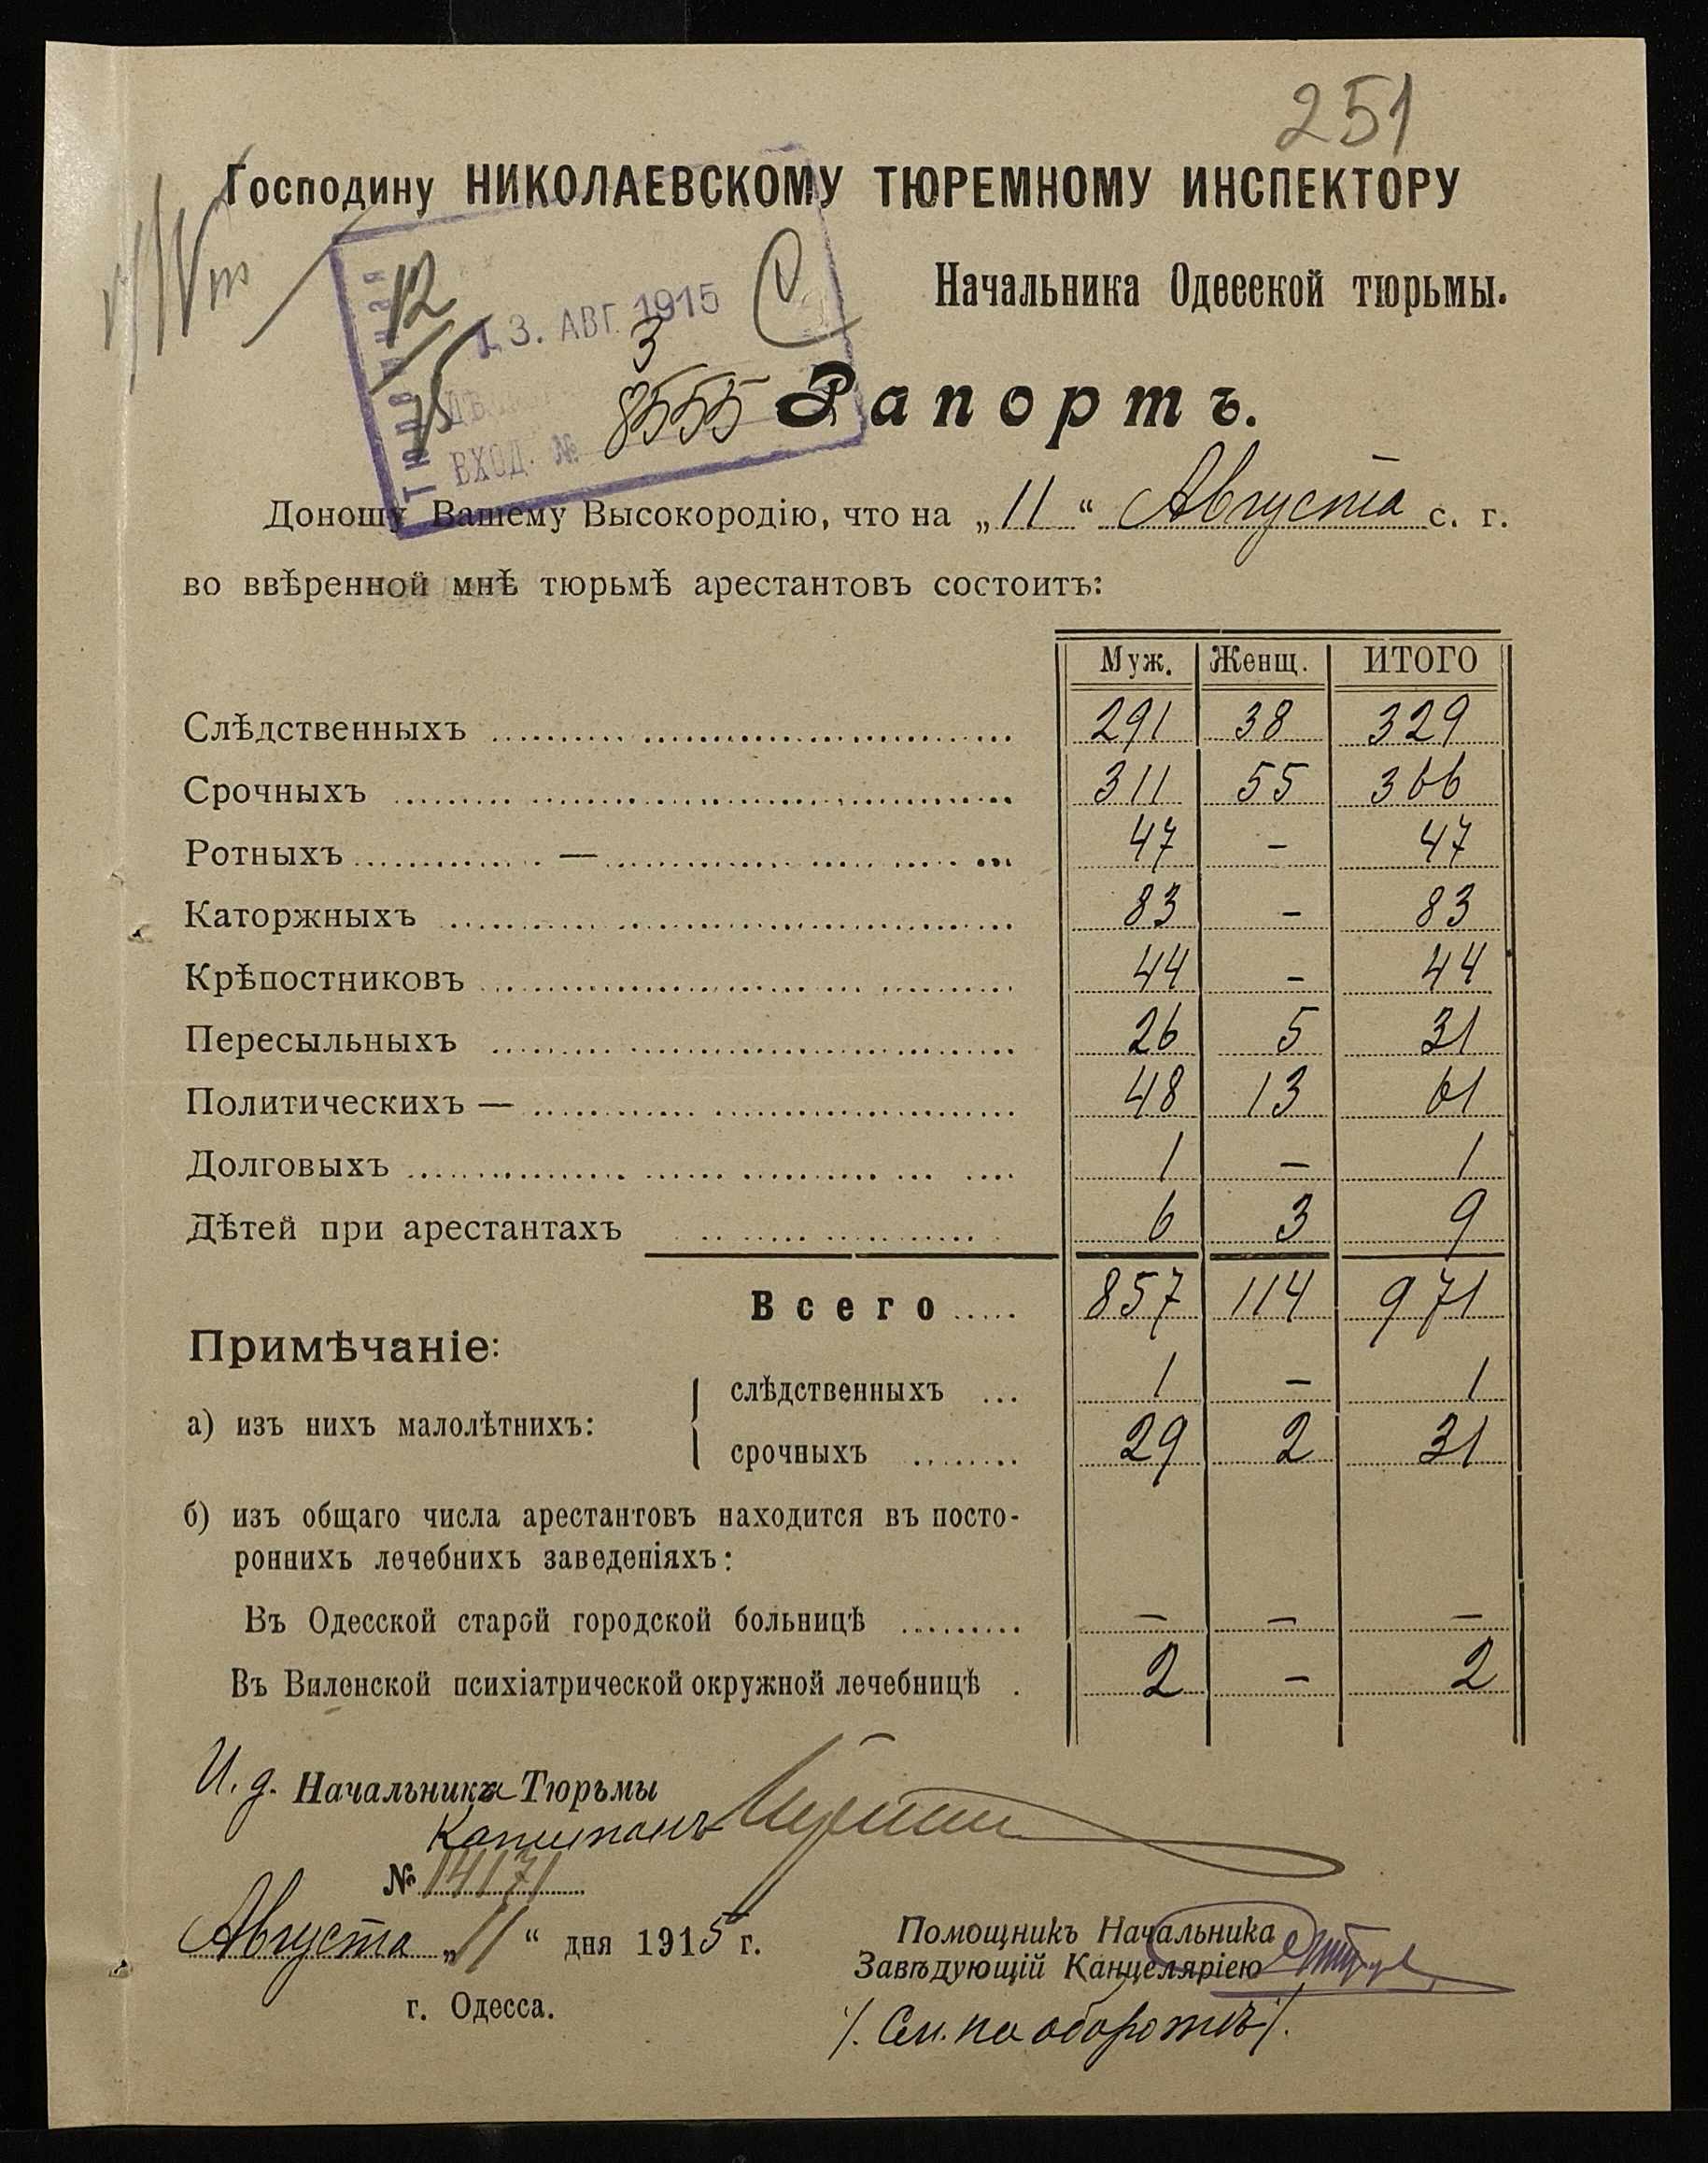 251
Господину НИКОЛАЕВСКОМУ ТЮРЕМНОМУ ИНСПЕКТОРУ
Начальника Одесской тюрьмы.
12
13. АВГ. 1915
3
ВХОД. № 8555
Рапортъ.
Доношу Вашему Высокородію, что на „11“ Августа с. г.
во ввѣренной мнѣ тюрьмѣ арестантовъ состоитъ:
Муж. Женщ. ИТОГО
Слѣдственныхъ 291 38 329
Срочныхъ 311 55 366
Ротныхъ — 47 - 47
Каторжныхъ 83 - 83
Крѣпостниковъ 44 - 44
Пересыльныхъ 26 5 31
Политическихъ — 48 13 61
Долговыхъ 1 - 1
Дѣтей при арестантахъ 6 3 9
Всего 857 114 971
Примѣчаніе:
а) изъ нихъ малолѣтнихъ:
слѣдственныхъ 1 - 1
срочныхъ 29 2 31
б) изъ общаго числа арестантовъ находится въ посто-
роннихъ лечебнихъ заведеніяхъ:
Въ Одесской старой городской больницѣ - - -
Въ Виленской психіатрической окружной лечебницѣ 2 - 2
И. д. Начальника Тюрьмы
Капитанъ
№ 14171
Августа „11“ дня 1915 г.
г. Одесса.
Помощникъ Начальника
Завѣдующій Канцеляріею
/. См. на оборотѣ/.